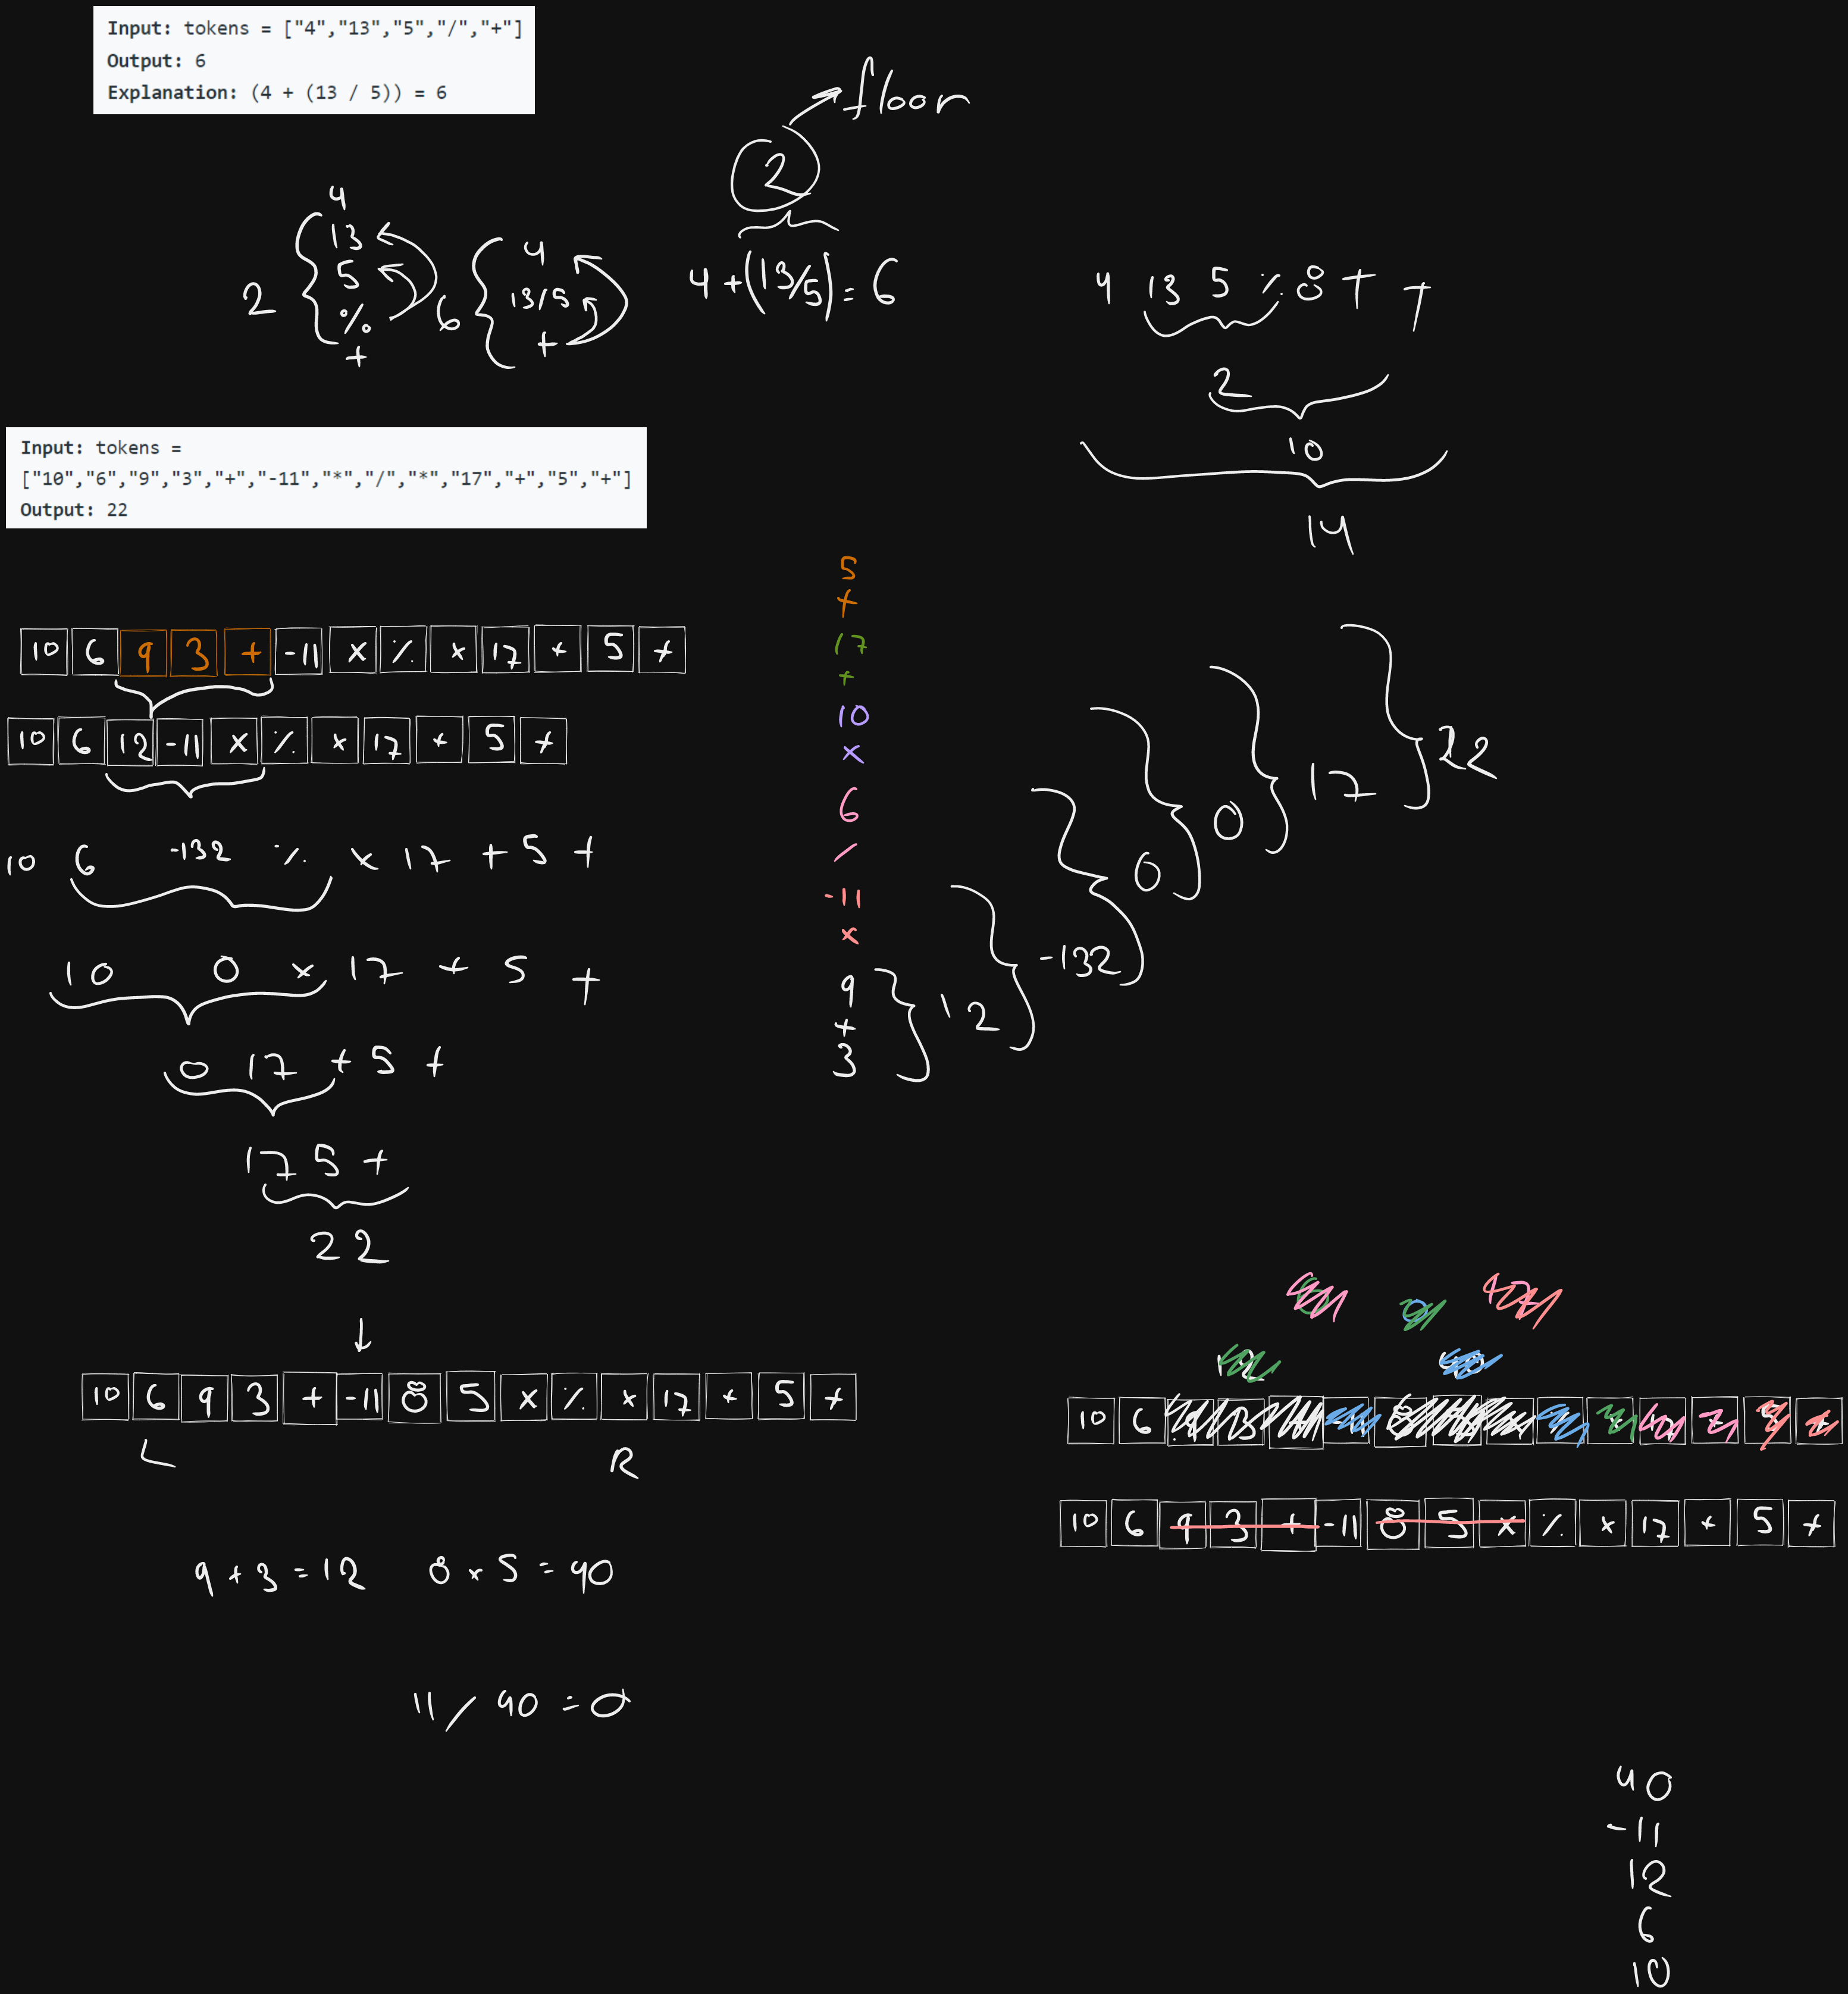 Input: tokens = ["4","13","5","/","+"]
Output: 6
Explanation: (4 + (13 / 5)) = 6
floor
2
4
13
5
%
+
2
4
13/5
+
6
4+(13/5)=6
4 13 5 % 8 + +
2
10
14
Input: tokens =
["10","6","9","3","+","-11","*","/","*","17","+","5","+"]
Output: 22
10 6 9 3 + -11 x % x 17 + 5 +
10 6 12 -11 x % x 17 + 5 +
10 6 -132 % x 17 + 5 +
10 0 x 17 + 5 +
0 17 + 5 +
17 5 +
22
5
+
17
+
10
x
6
/
-11
x
9
+
3
12
-132
0
0
17
22
10 6 9 3 + -11 8 5 x % x 17 + 5 +
L R
9 + 3 = 12 8 x 5 = 40
11 / 40 = 0
12
10 6
10 6 9 3 + -11 8 5 x % x 17 + 5 +
40
-11
12
6
10